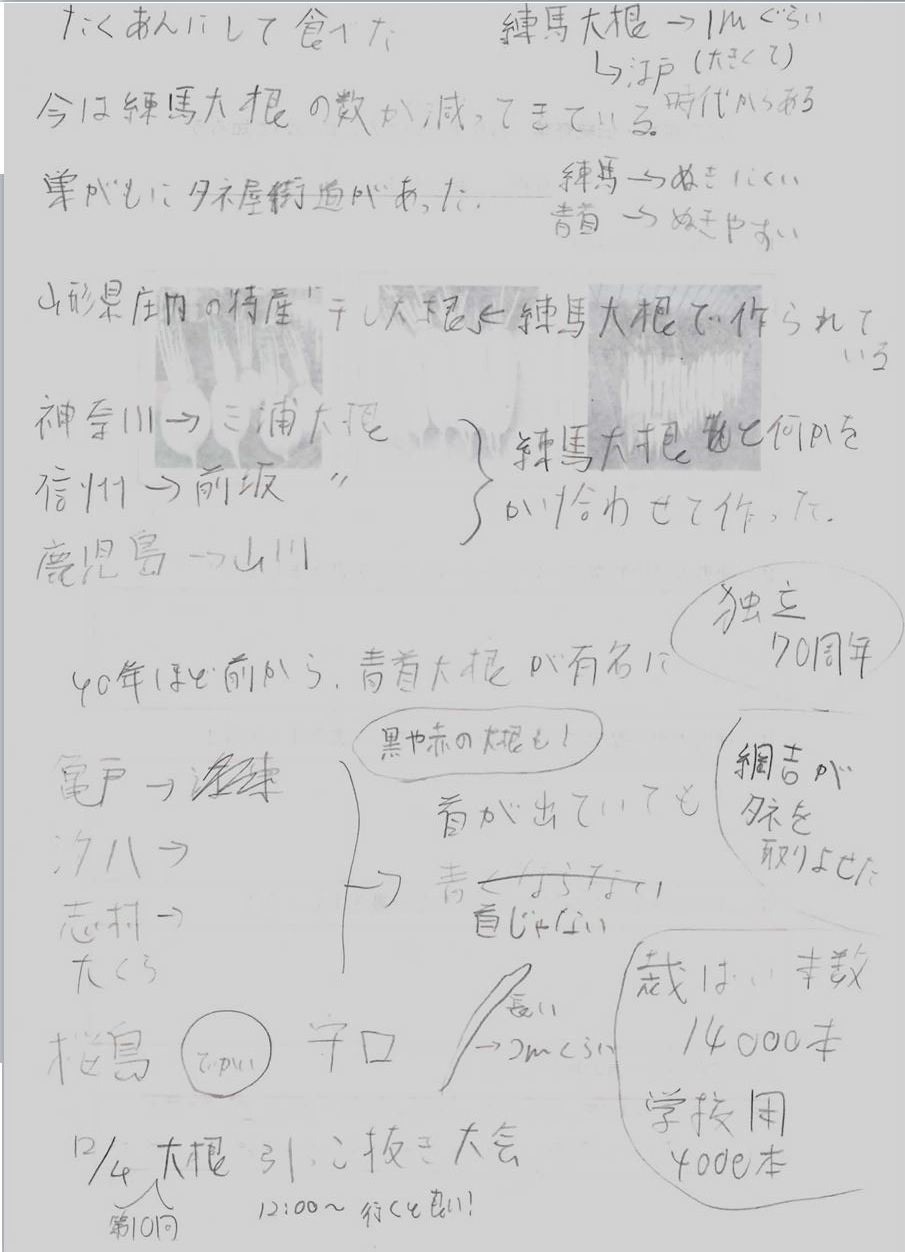 たくあんにして食べた
練馬大根→1mぐらい
(大きくて)
↳江戸時代からある
今は練馬大根の数が減ってきている。
巣がもにタネ屋街道があった。
練馬→ぬきにくい
青首→ぬきやすい
山形県庄内の特産「干し大根」←練馬大根で作られて
いる
神奈川→三浦大根
信州→前坂 〃
鹿児島→山川
練馬大根と何かを
かけ合わせて作った。
独立
70周年
40年ほど前から、青首大根が有名に
黒や赤の大根も!
亀戸→
汐入→
志村→
大くら
首が出ていても
青くならない
首じゃない
綱吉が
タネを
取りよせた
桜島 でかい 守口
長い
→2mくらい
栽ばい本数
14000本
学校用
4000本
12/4 大根引っこ抜き大会
第10回
12:00~ 行くと良い!